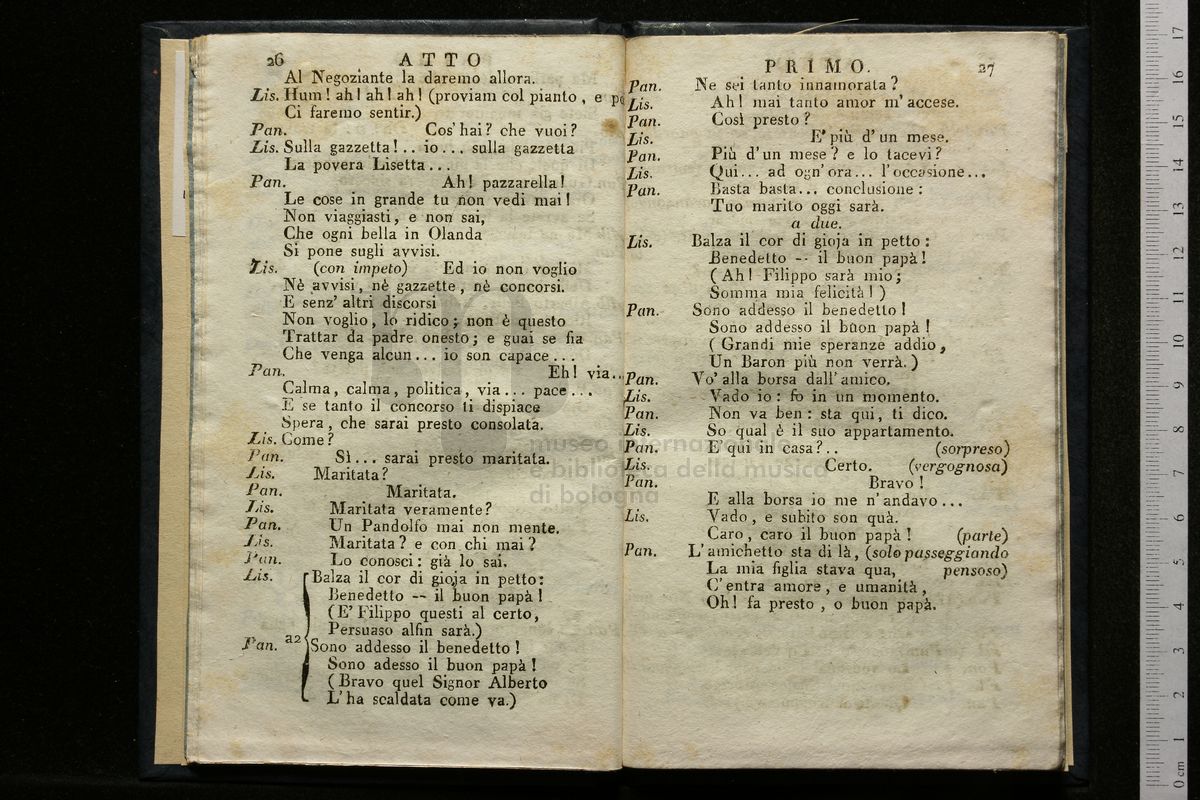 26 ATTO
Al Negoziante la daremo allora.
Lis. Hum! ah! ah! ah! (proviam col pianto, e po
Ci faremo sentir.)
Pan. Cos' hai? che vuoi?
Lis. Sulla gazzetta!.. io... sulla gazzetta
La povera Lisetta...
Pan. Ah! pazzarella!
Le cose in grande tu non vedi mai!
Non viaggiasti, e non sai,
Che ogni bella in Olanda
Si pone sugli avvisi.
Lis. (con impeto) Ed io non voglio
Nè avvisi, nè gazzette, nè concorsi.
E senz' altri discorsi
Non voglio, lo ridico; non è questo
Trattar da padre onesto; e guai se fia
Che venga alcun... io son capace...
Pan. Eh! via...
Calma, calma, politica, via... pace...
E se tanto il concorso ti dispiace
Spera, che sarai presto consolata.
Lis. Come?
Pan. Sì... sarai presto maritata.
Lis. Maritata?
Pan. Maritata.
Lis. Maritata veramente?
Pan. Un Pandolfo mai non mente.
Lis. Maritata? e con chi mai?
Pan. Lo conosci: già lo sai.
Lis. Balza il cor di gioja in petto:
Benedetto -- il buon papà!
(E' Filippo questi al certo,
Persuaso alfin sarà.)
Pan. a2 Sono addesso il benedetto!
Sono adesso il buon papà!
(Bravo quel Signor Alberto
L' ha scaldata come va.)
PRIMO. 27
Pan. Ne sei tanto innamorata?
Lis. Ah! mai tanto amor m' accese.
Pan. Così presto?
Lis. E' più d' un mese.
Pan. Più d' un mese? e lo tacevi?
Lis. Qui... ad ogn' ora... l' occasione...
Pan. Basta basta... conclusione:
Tuo marito oggi sarà.
a due.
Lis. Balza il cor di gioja in petto:
Benedetto -- il buon papà!
(Ah! Filippo sarà mio;
Somma mia felicità!)
Pan. Sono addesso il benedetto!
Sono addesso il buon papà!
(Grandi mie speranze addio,
Un Baron più non verrà.)
Pan. Vo' alla borsa dall' amico.
Lis. Vado io: fo in un momento.
Pan. Non va ben: sta qui, ti dico.
Lis. So qual è il suo appartamento.
Pan. E' qui in casa?.. (sorpreso)
Lis. Certo. (vergognosa)
Pan. Bravo!
E alla borsa io me n' andavo...
Lis. Vado, e subito son quà.
Caro, caro il buon papà! (parte)
Pan. L' amichetto sta di là, (solo passeggiando
La mia figlia stava qua, pensoso)
C' entra amore, e umanità,
Oh! fa presto, o buon papà.
museo internazionale
e biblioteca della musica
di bologna
0 cm 1 2 3 4 5 6 7 8 9 10 11 12 13 14 15 16 17